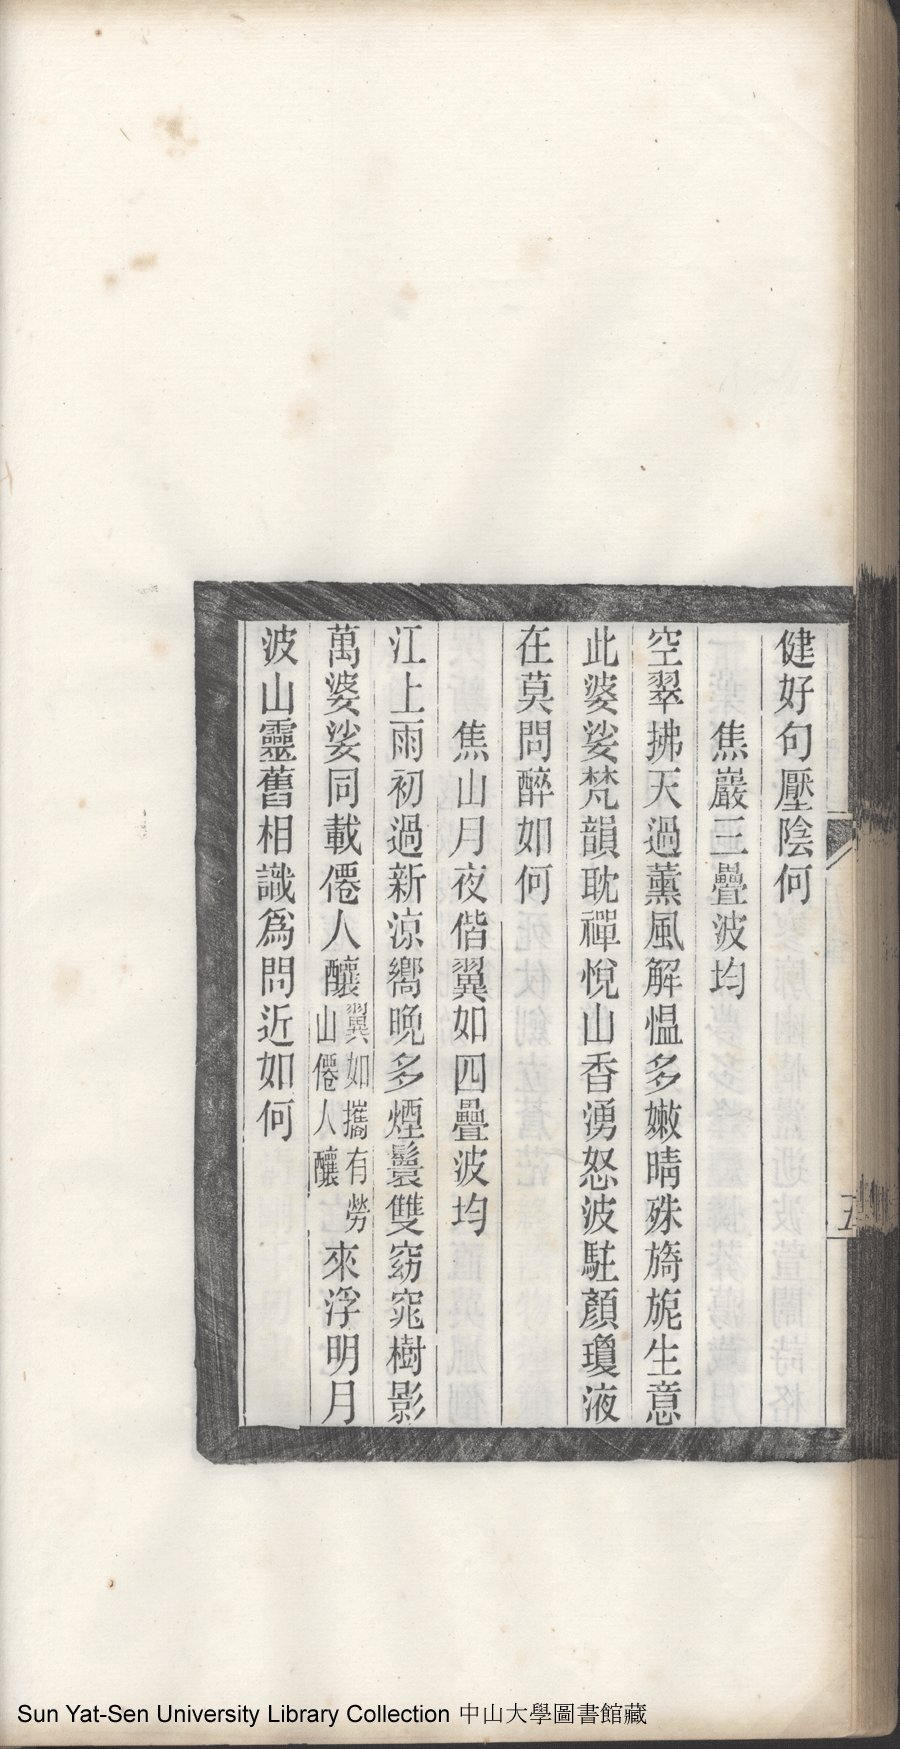 健好句壓陰何
焦巖三疊波均
空翠拂天過薰風解慍多嫩晴殊旖旎生意
此婆娑梵韻耽禪悅山香湧怒波駐顏瓊液
在莫問醉如何
焦山月夜偕翼如四疊波均
江上雨初過新涼嚮晚多煙鬟雙窈窕樹影
萬婆娑同載僊人釀翼如攜有勞山僊人釀來浮明月
波山靈舊相識爲問近如何
五
Sun Yat-Sen University Library Collection 中山大學圖書館藏